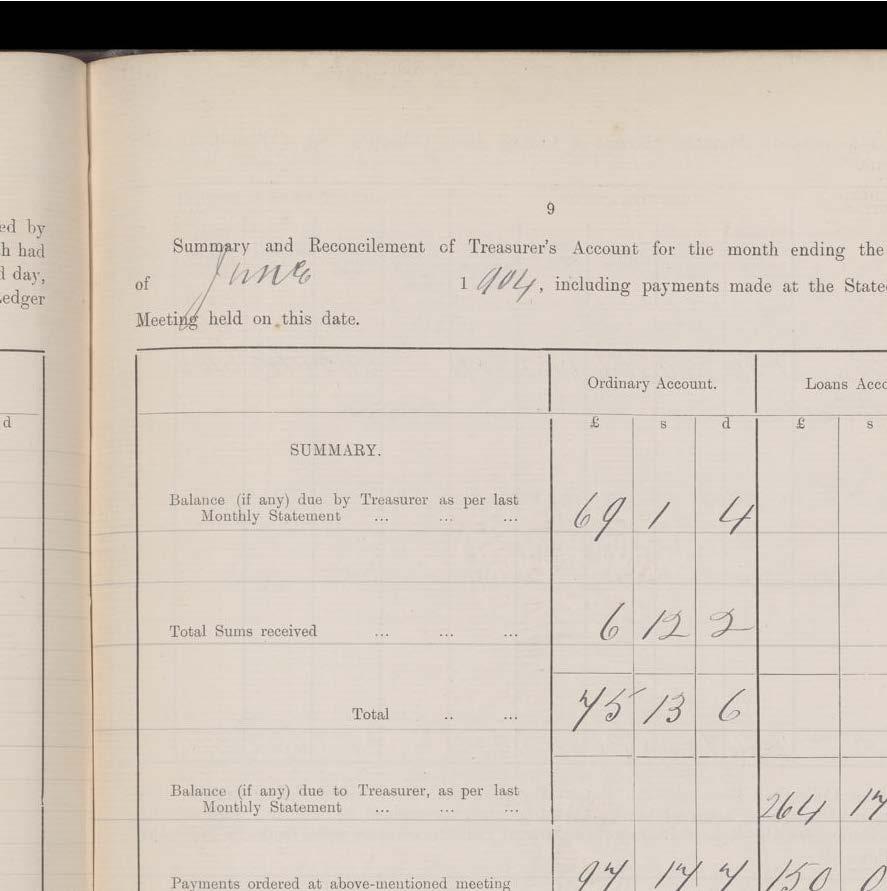 ed by
h had
d day,
Ledger
d
9
Summary and Reconcilement of Treasurer's Account for the month ending the
of June 1 904, including payments made at the State
Meeting held on this date.
Ordinary Account. Loans Acc
£ s d £ s
SUMMARY.
Balance (if any) due by Treasurer as per last
Monthly Statement ... ... ... 69 1 4
Total Sums received ... ... ... 6 12 2
Total .. ... 75 13 6
Balance (if any) due to Treasurer, as per last
Monthly Statement ... ... ... 264 17
Payments ordered at above-mentioned meeting 97 17 7 150 0